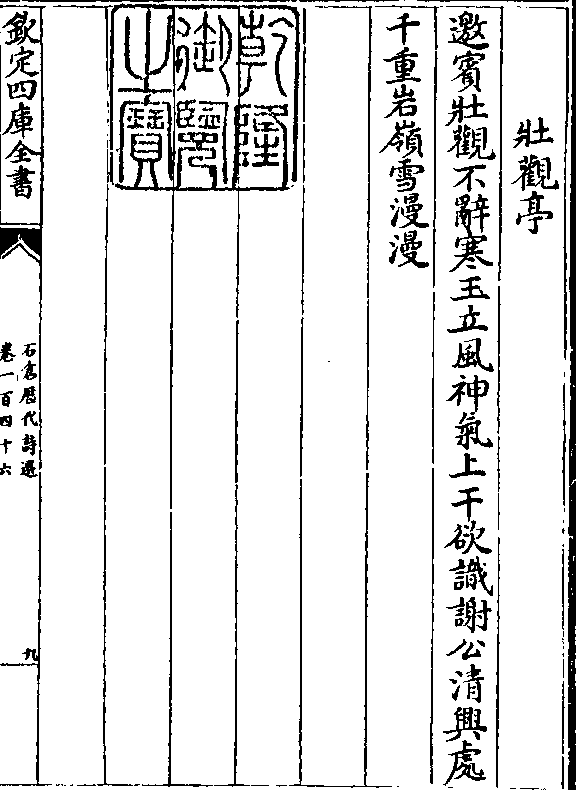 壯觀亭
邀賓壯觀不辭寒玉立風神氣上干欲識謝公清興處
千重岩嶺雪漫漫
乾隆
御覽
之寶
欽定四庫全書
石倉歷代詩選
卷一百四十六
九